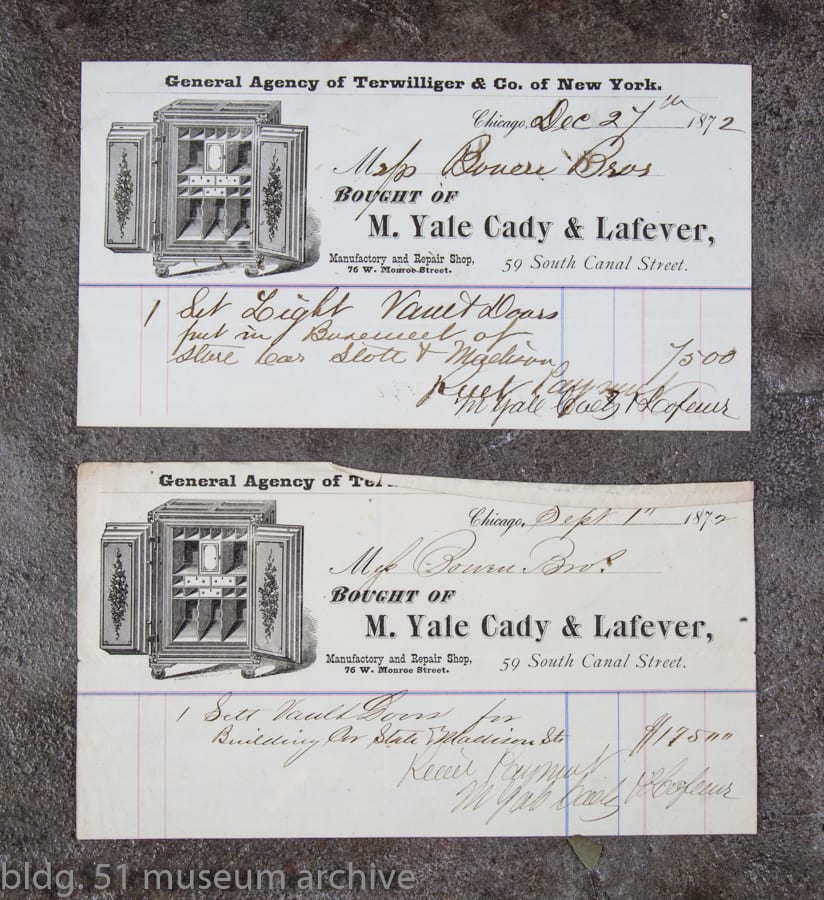 General Agency of Terwilliger & Co. of New York.
Chicago, Dec 27th 1872
Mess Bowen Bros
BOUGHT OF
M. Yale Cady & Lafever,
Manufactory and Repair Shop,
76 W. Monroe Street.
59 South Canal Street.
1 Set Light Vault Doors
put in Basement of
Store Cor State & Madison 7500
Recd Payment
M Yale Cady & Lafever
General Agency of Ter
Chicago, Sept 1" 1872
Mess Bowen Bros
BOUGHT OF
M. Yale Cady & Lafever,
Manufactory and Repair Shop,
76 W. Monroe Street.
59 South Canal Street.
1 Sett Vault Doors for
Building Cor State & Madison Sts $175""
Payment
M Yale Cady & Lafever
bldg. 51 museum archive